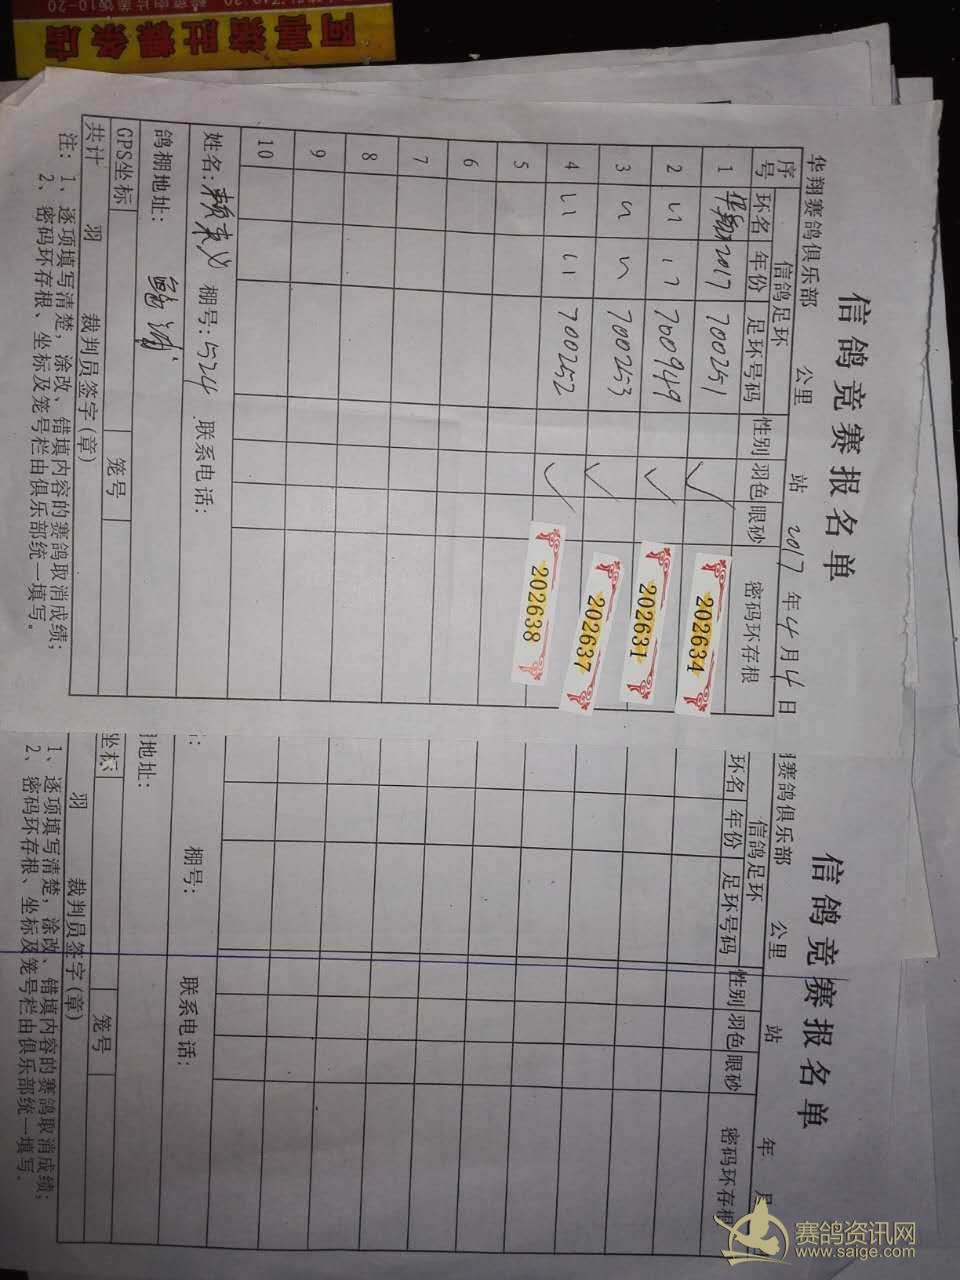 信鸽竞赛报名单
华翔赛鸽俱乐部 公里 站 2017年4月4日
序号 信鸽足环 性别 羽色 眼砂 密码环存根
环名 年份 足环号码
1 华翔 2017 700251 ✓ 202634
2 〃 17 700949 ✓ 202631
3 〃 〃 700253 ✓ 202637
4 〃 〃 700252 ✓ 202638
5
6
7
8
9
10
姓名: 棚号:524 联系电话:
鸽棚地址:
GPS坐标 笼号
共计 羽 裁判员签字(章)
注: 1、逐项填写清楚,涂改、错填内容的赛鸽取消成绩;
2、密码环存根、坐标及笼号栏由俱乐部统一填写。
信鸽竞赛报名单
赛鸽俱乐部 公里 站 年 月
信鸽足环 性别 羽色 眼砂 密码环存根
环名 年份 足环号码
: 棚号: 联系电话:
地址:
坐标 笼号
羽 裁判员签字(章)
1、逐项填写清楚,涂改、错填内容的赛鸽取消成绩;
2、密码环存根、坐标及笼号栏由俱乐部统一填写。
赛鸽资讯网
www.saige.com